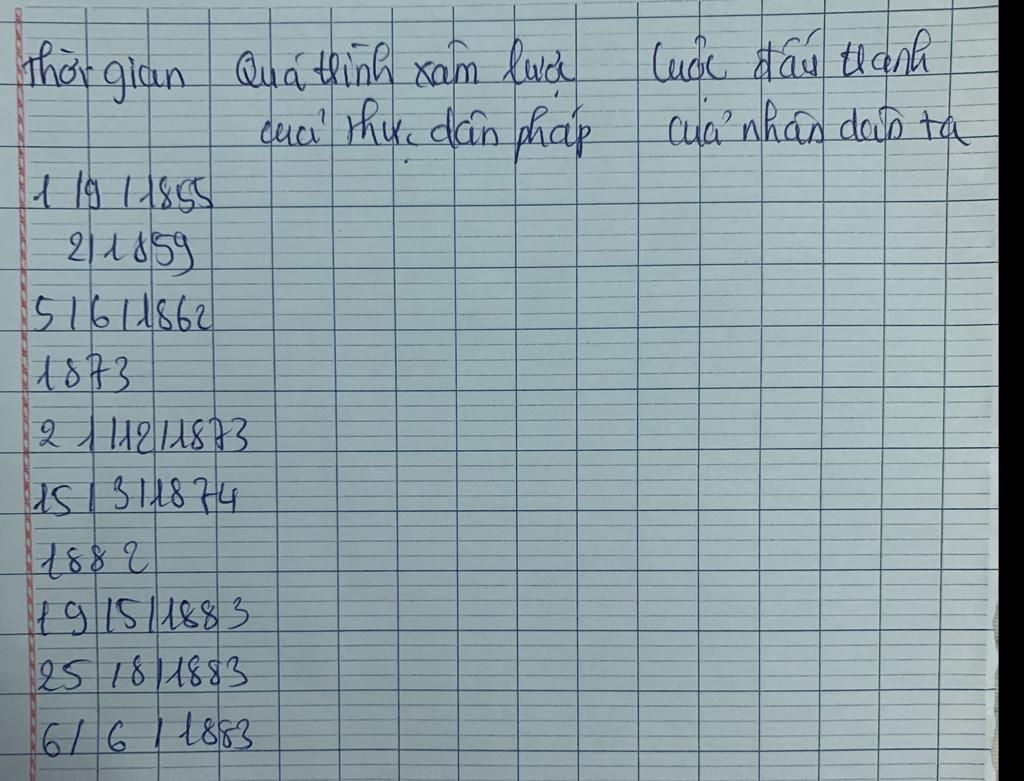 Thời gian Quá trình xâm lược Cuộc đấu tranh
của thực dân pháp của nhân dân ta
1/9/1855
2/1859
5/6/1862
1873
21/12/1873
15/3/1874
1882
19/5/1883
25/8/1883
6/6/1883